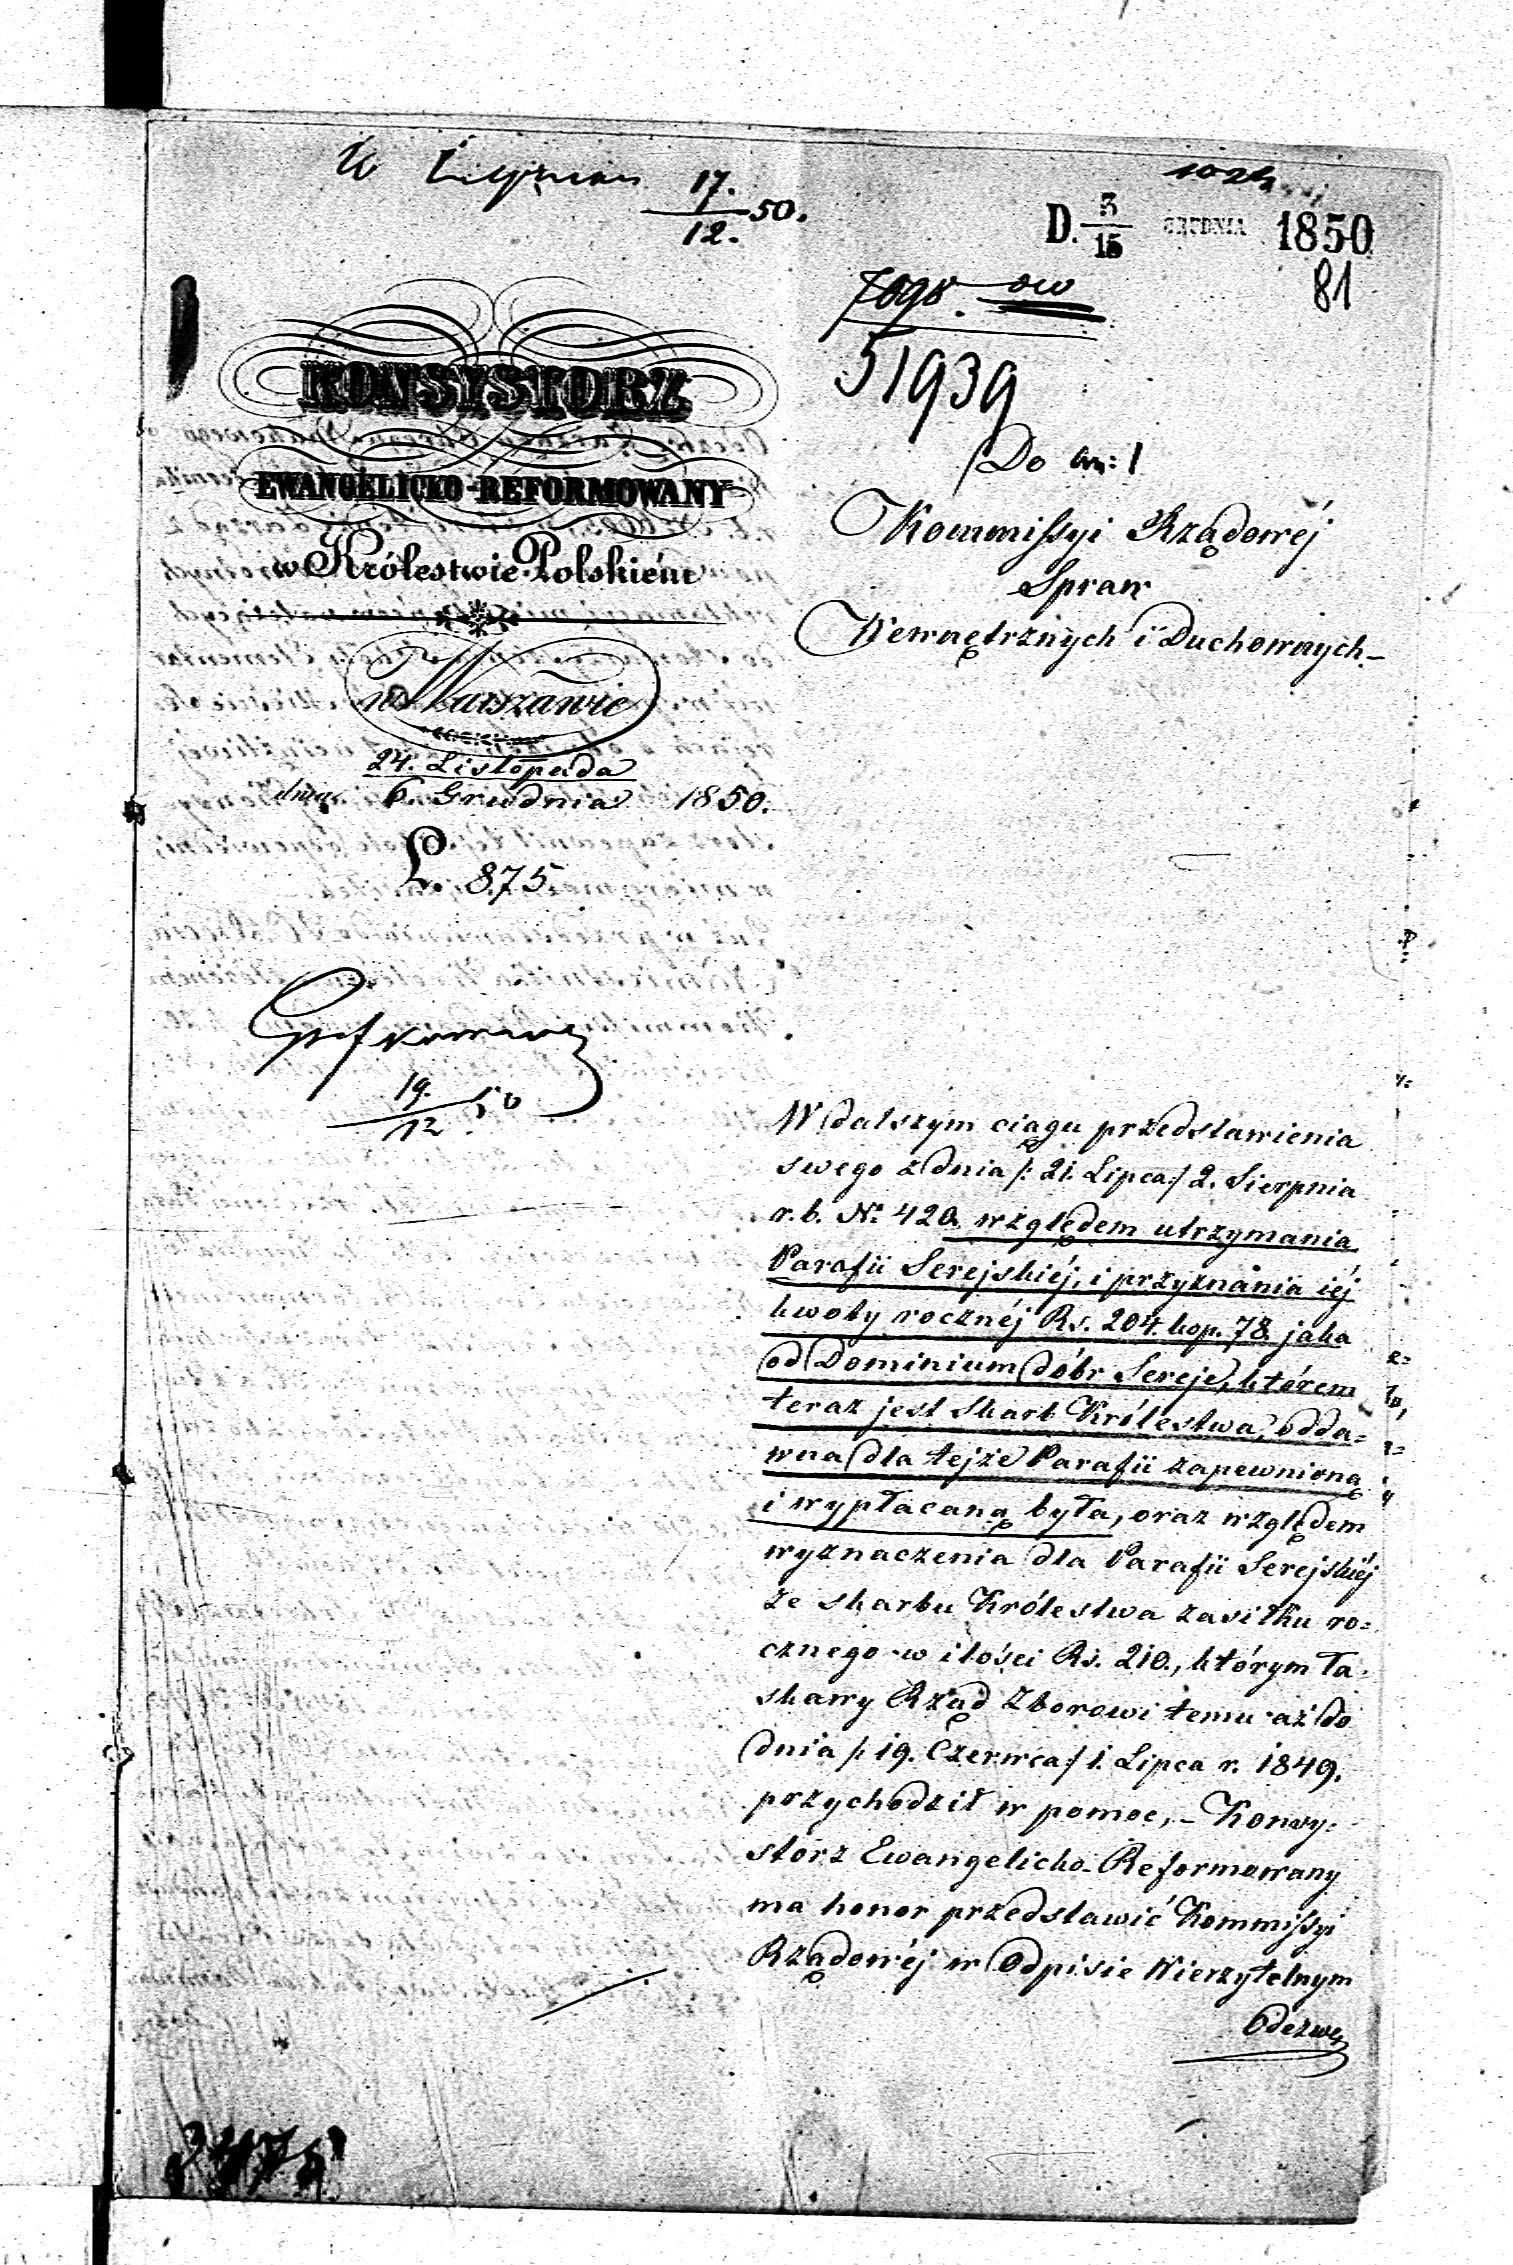 17.
12. 50.
D. 3/15 GRUDNIA 1850
81
51939
KONSYSTORZ
EWANGELICKO-REFORMOWANY
w Królestwie Polskiém
w Warszawie
24. Listopada
dnia 6. Grudnia 1850.
L. 875
19.
12. 50
Do
Kommissyi Rządowéj
Spraw
Wewnętrznych i Duchownych
W dalszym ciągu przedstawienia
swego z dnia /: 21. Lipca :/ 2. Sierpnia
r. b. No 420. względem utrzymania
Parafii Serejskiéj, i przyznania iéj
kwoty rocznéj Rs. 204. kop. 78. jaka
od Dominium dóbr Sereje, którem
teraz jest Skarb Królestwa, odda=
wna dla tejże Parafii zapewnioną
i wypłacaną była, oraz względem
wyznaczenia dla Parafii Serejskiéj
ze skarbu Królestwa zasiłku ro=
cznego w ilości Rs. 210., którym ła=
skawy Rząd Zborowi temu aż do
dnia /: 19. Czerwca :/ 1. Lipca r. 1849.
przychodził w pomoc, - Konsy=
storz Ewangelicko-Reformowany
ma honor przedstawić Kommissyi
Rządowéj w Odpisie Wierzytelnym
Odezwę